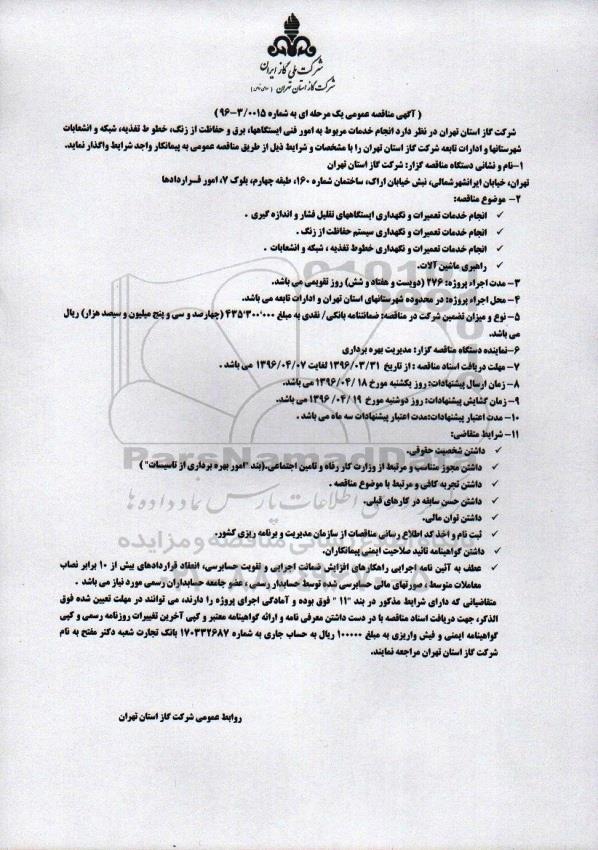 شرکت ملی گاز ایران
شرکت گاز استان تهران
( آگهی مناقصه عمومی یک مرحله ای به شماره ۹۶-۳/۰۰۱۵ )
شرکت گاز استان تهران در نظر دارد انجام خدمات مربوط به امور فنی ایستگاهها، برق و حفاظت از زنگ، خطو ط تغذیه، شبکه و انشعابات
شهرستانها و ادارات تابعه شرکت گاز استان تهران را با مشخصات و شرایط ذیل از طریق مناقصه عمومی به پیمانکار واجد شرایط واگذار نماید.
۱-نام و نشانی دستگاه مناقصه گزار: شرکت گاز استان تهران
تهران، خیابان ایرانشهرشمالی، نبش خیابان اراک، ساختمان شماره ۱۶۰، طبقه چهارم، بلوک ۷، امور قراردادها
۲- موضوع مناقصه:
✓ انجام خدمات تعمیرات و نگهداری ایستگاههای تقلیل فشار و اندازه گیری .
✓ انجام خدمات تعمیرات و نگهداری سیستم حفاظت از زنگ .
✓ انجام خدمات تعمیرات و نگهداری خطوط تغذیه ، شبکه و انشعابات .
✓ راهبری ماشین آلات.
۳- مدت اجراء پروژه: ۲۷۶ (دویست و هفتاد و شش) روز تقویمی می باشد.
۴- محل اجراء پروژه: در محدوده شهرستانهای استان تهران و ادارات تابعه می باشد.
۵- نوع و میزان تضمین شرکت در مناقصه: ضمانتنامه بانکی/ نقدی به مبلغ ۴۳۵٬۳۰۰٬۰۰۰ (چهارصد و سی و پنج میلیون و سیصد هزار) ریال
می باشد.
۶-نماینده دستگاه مناقصه گزار: مدیریت بهره برداری
۷- مهلت دریافت اسناد مناقصه : از تاریخ ۱۳۹۶/۰۳/۳۱ لغایت ۱۳۹۶/۰۴/۰۷ می باشد .
۸- زمان ارسال پیشنهادات: روز یکشنبه مورخ ۱۳۹۶/۰۴/۱۸ می باشد.
۹- زمان گشایش پیشنهادات: روز دوشنبه مورخ ۱۳۹۶/۰۴/۱۹ می باشد.
۱۰- مدت اعتبار پیشنهادات:مدت اعتبار پیشنهادات سه ماه می باشد .
۱۱- شرایط متقاضی:
✓ داشتن شخصیت حقوقی.
✓ داشتن مجوز متناسب و مرتبط از وزارت کار رفاه و تامین اجتماعی.(بند "امور بهره برداری از تاسیسات" )
✓ داشتن تجربه کافی و مرتبط با موضوع مناقصه .
✓ داشتن حسن سابقه در کارهای قبلی.
✓ داشتن توان مالی.
✓ ثبت نام و اخذ کد اطلاع رسانی مناقصات از سازمان مدیریت و برنامه ریزی کشور.
✓ داشتن گواهینامه تائید صلاحیت ایمنی پیمانکاران.
✓ عطف به آئین نامه اجرایی راهکارهای افزایش ضمانت اجرایی و تقویت حسابرسی، انعقاد قراردادهای بیش از ۱۰ برابر نصاب
معاملات متوسط ، صورتهای مالی حسابرسی شده توسط حسابدار رسمی ، عضو جامعه حسابداران رسمی مورد نیاز می باشد .
متقاضیانی که دارای شرایط مذکور در بند "۱۱ " فوق بوده و آمادگی اجرای پروژه را دارند، می توانند در مهلت تعیین شده فوق
الذکر، جهت دریافت اسناد مناقصه با در دست داشتن معرفی نامه و ارائه گواهینامه معتبر و کپی آخرین تغییرات روزنامه رسمی و کپی
گواهینامه ایمنی و فیش واریزی به مبلغ ۱۰۰۰۰۰ ریال به حساب جاری به شماره ۱۷۰۳۳۲۶۸۷ بانک تجارت شعبه دکتر مفتح به نام
شرکت گاز استان تهران مراجعه نمایند.
روابط عمومی شرکت گاز استان تهران
ParsNamadData